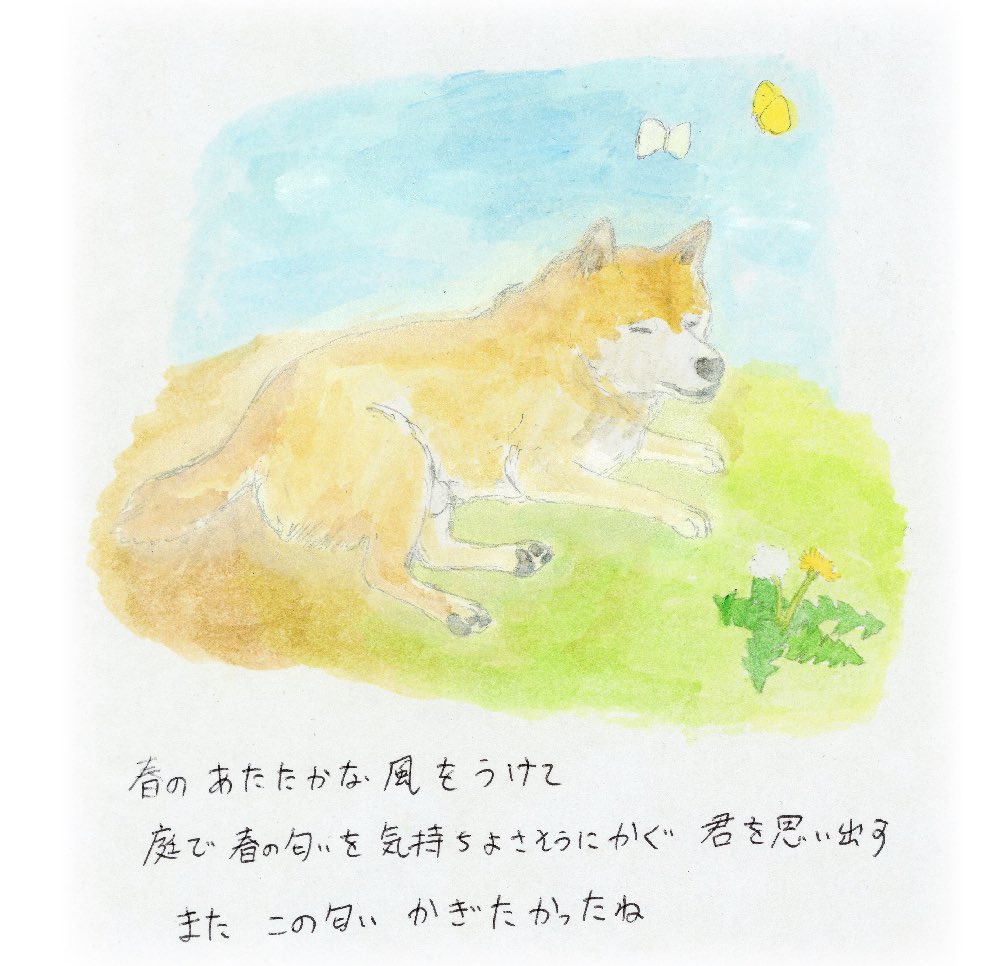 春の あたたかな 風をうけて
庭で 春の匂いを 気持ちよさそうにかぐ 君を思い出す
また この匂い かぎたかったね